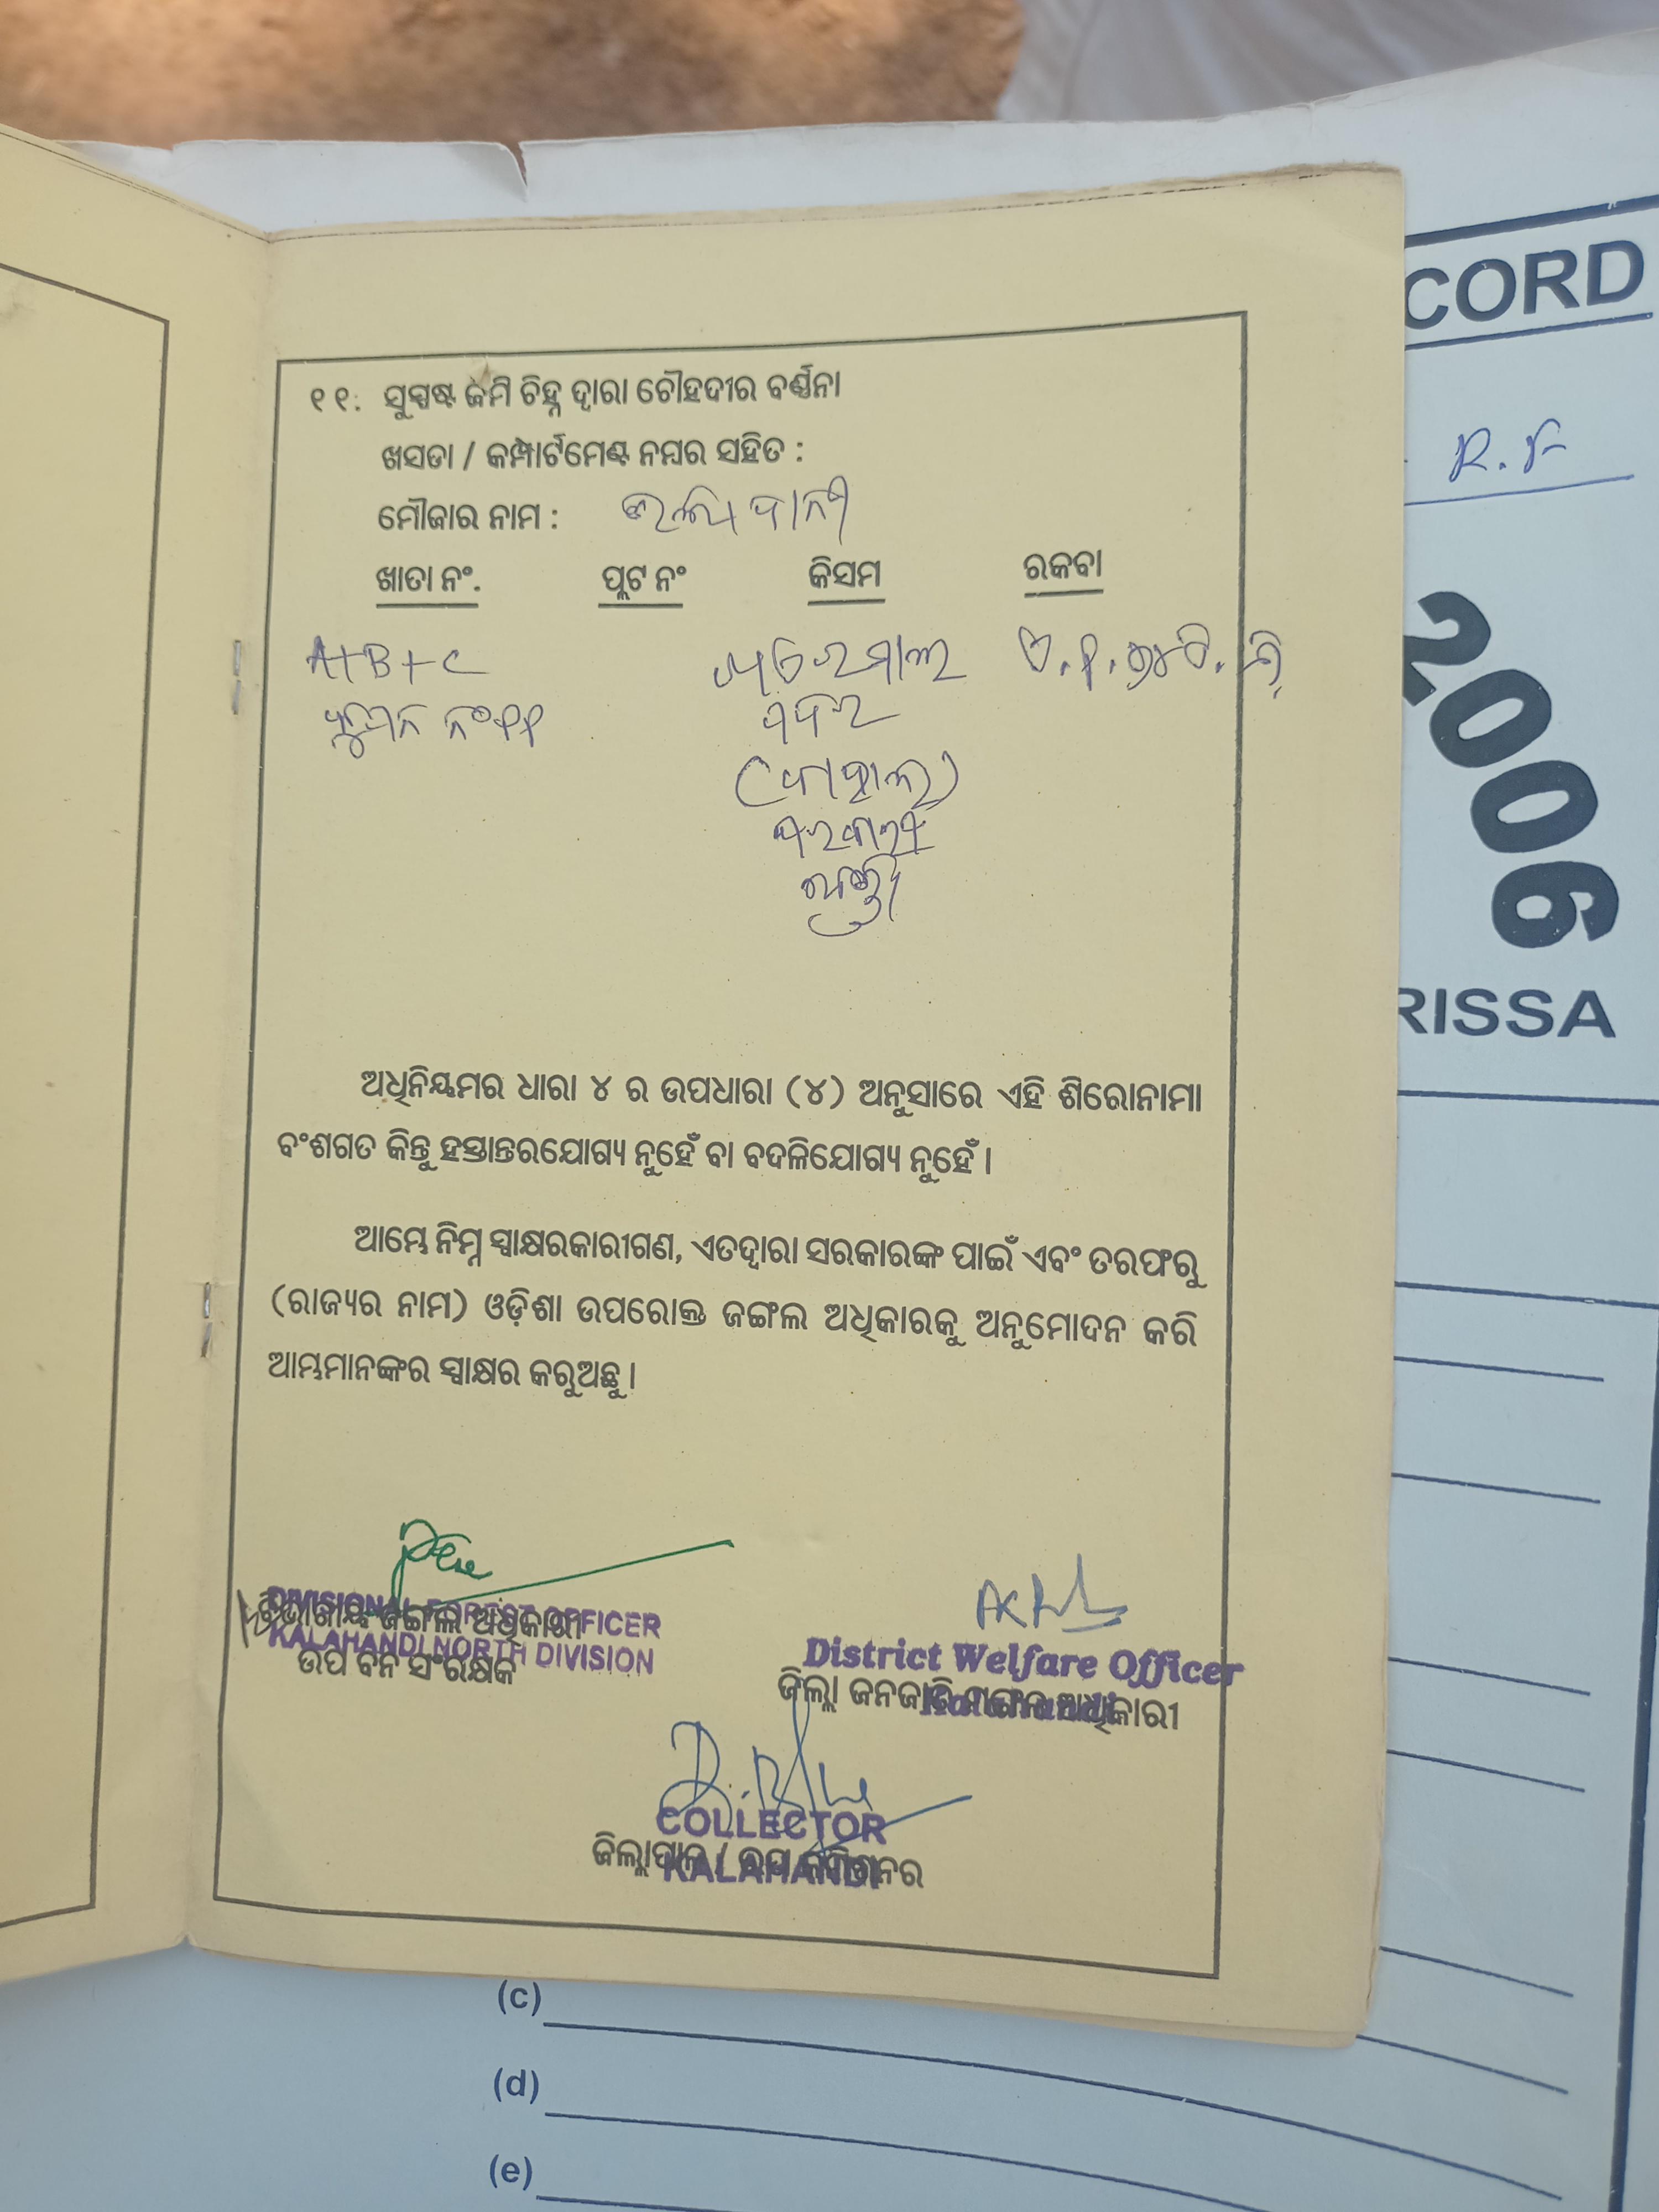 ୧୧. ସୁସ୍ପଷ୍ଟ ଜମି ଚିହ୍ନ ଦ୍ୱାରା ଚୌହଦୀର ବର୍ଣ୍ଣନା
ଖସଡା / କମ୍ପାର୍ଟମେଣ୍ଟ ନମ୍ବର ସହିତ :
ମୌଜାର ନାମ :
ଖାତା ନଂ. ପ୍ଲଟ ନଂ କିସମ ରକବା
A+B+C
ଅଧିନିୟମର ଧାରା ୪ ର ଉପଧାରା (୪) ଅନୁସାରେ ଏହି ଶିରୋନାମା
ବଂଶଗତ କିନ୍ତୁ ହସ୍ତାନ୍ତରଯୋଗ୍ୟ ନୁହେଁ ବା ବଦଳିଯୋଗ୍ୟ ନୁହେଁ ।
ଆମ୍ଭେ ନିମ୍ନ ସ୍ୱାକ୍ଷରକାରୀଗଣ, ଏତଦ୍ୱାରା ସରକାରଙ୍କ ପାଇଁ ଏବଂ ତରଫରୁ
(ରାଜ୍ୟର ନାମ) ଓଡ଼ିଶା ଉପରୋକ୍ତ ଜଙ୍ଗଲ ଅଧିକାରକୁ ଅନୁମୋଦନ କରି
ଆମ୍ଭମାନଙ୍କର ସ୍ୱାକ୍ଷର କରୁଅଛୁ ।
DIVISIONAL FOREST OFFICER
ବିଭାଗୀୟ ଜଙ୍ଗଲ ଅଧିକାରୀ
KALAHANDI NORTH DIVISION
ଉପ ବନ ସଂରକ୍ଷକ
District Welfare Officer
Kalahandi
ଜିଲ୍ଲା ଜନଜାତି ମଙ୍ଗଳ ଅଧିକାରୀ
COLLECTOR
ଜିଲ୍ଲାପାଳ / ଉପ କମିଶନର
KALAHANDI
CORD
R.F
2006
RISSA
(c)
(d)
(e)